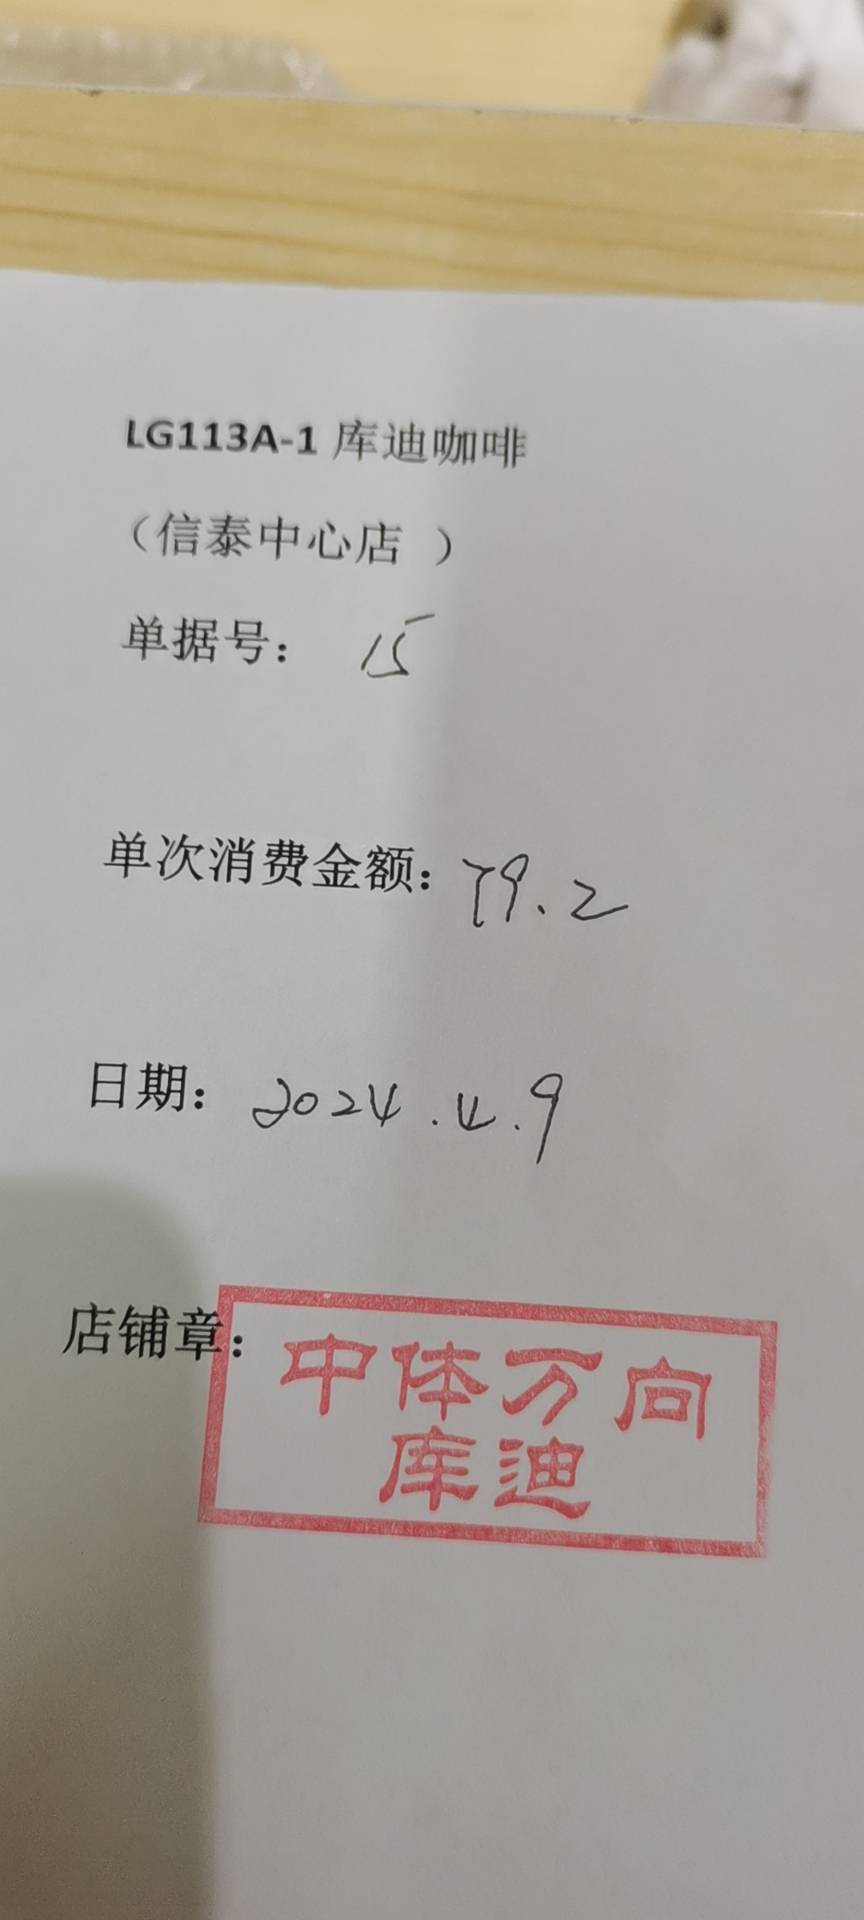 LG113A-1 库迪咖啡
（信泰中心店 ）
单据号： 15
单次消费金额：79.2
日期：2024.4.9
店铺章：
中体万向
库迪